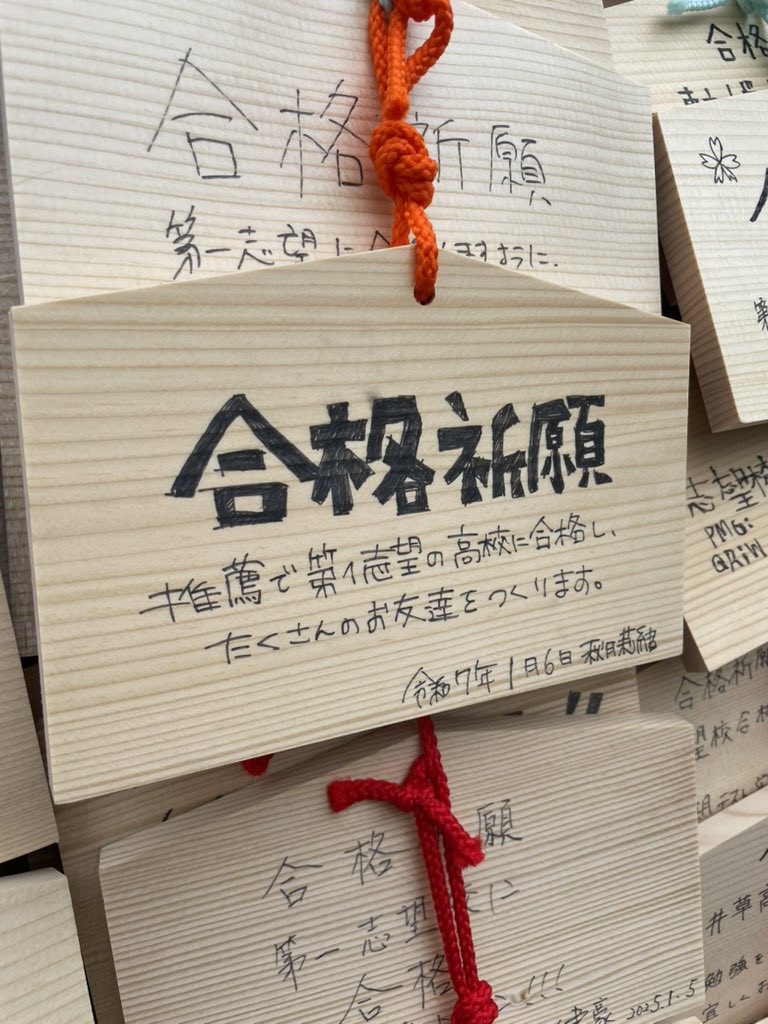 合格祈願
第一志望に合
ますように.
合格祈願
推薦で第1志望の高校に合格し、
たくさんのお友達をつくります。
令和7年1月6日 秋月莉緒
合格
願
第一志望
に
合格
!!!
2025.1.5
合格
志望校
PMGi
合格祈願
望校合格
井草高
勉強を
宜しくお